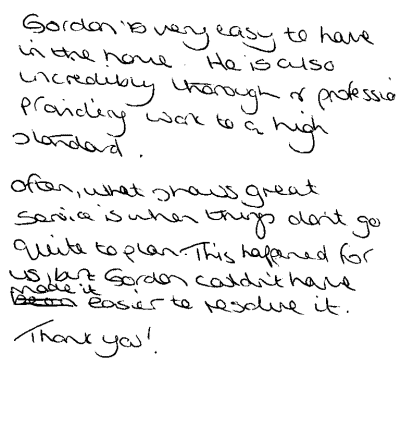 Gordon is very easy to have
in the home. He is also
incredibly thorough & professio
providing work to a high
standard.
Often, what shows great
service is when things don't go
quite to plan. This happened for
us, but Gordon couldn't have
made it
been easier to resolve it.
Thank you!